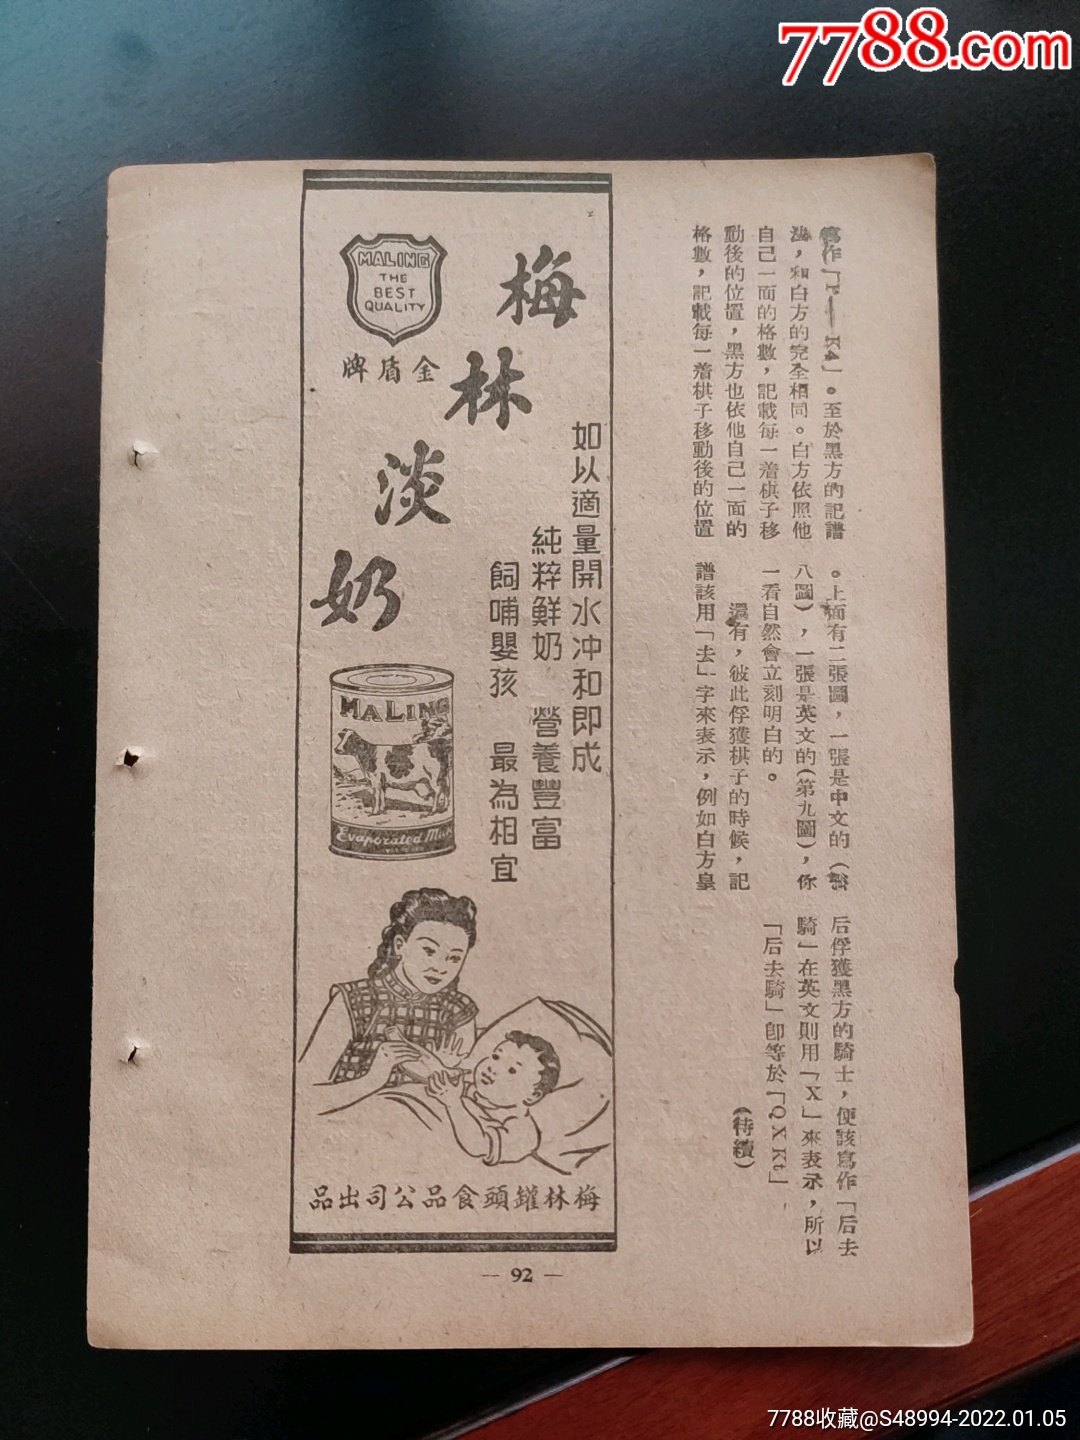 7788.com
寫作「P—K4」。至於黑方的記譜
法，和白方的完全相同。白方依照他
自己一面的格數，記載每一着棋子移
動後的位置，黑方也依他自己一面的
格數，記載每一着棋子移動後的位置
。上面有二張圖，一張是中文的（第
八圖），一張是英文的（第九圖），你
一看自然會立刻明白的。
還有，彼此俘獲棋子的時候，記
譜該用「去」字來表示，例如白方皇
后俘獲黑方的騎士，便該寫作「后去
騎」在英文則用「X」來表示，所以
「后去騎」卽等於「QXKt」
（待續）
MALING
THE
BEST
QUALITY
金盾牌
梅林淡奶
如以適量開水冲和即成
純粹鮮奶 營養豐富
飼哺嬰孩 最為相宜
MALING
Evaporated Milk
梅林罐頭食品公司出品
— 92 —
7788收藏@S48994-2022.01.05